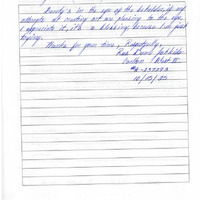 Beauty's in the eye of the beholder, if my
attempts at creating art are pleasing to the eye,
I appreciate it, it's a blessing, because I'm just
trying.
Thanks for your time, Respectfully,
Carlton
10/13/23